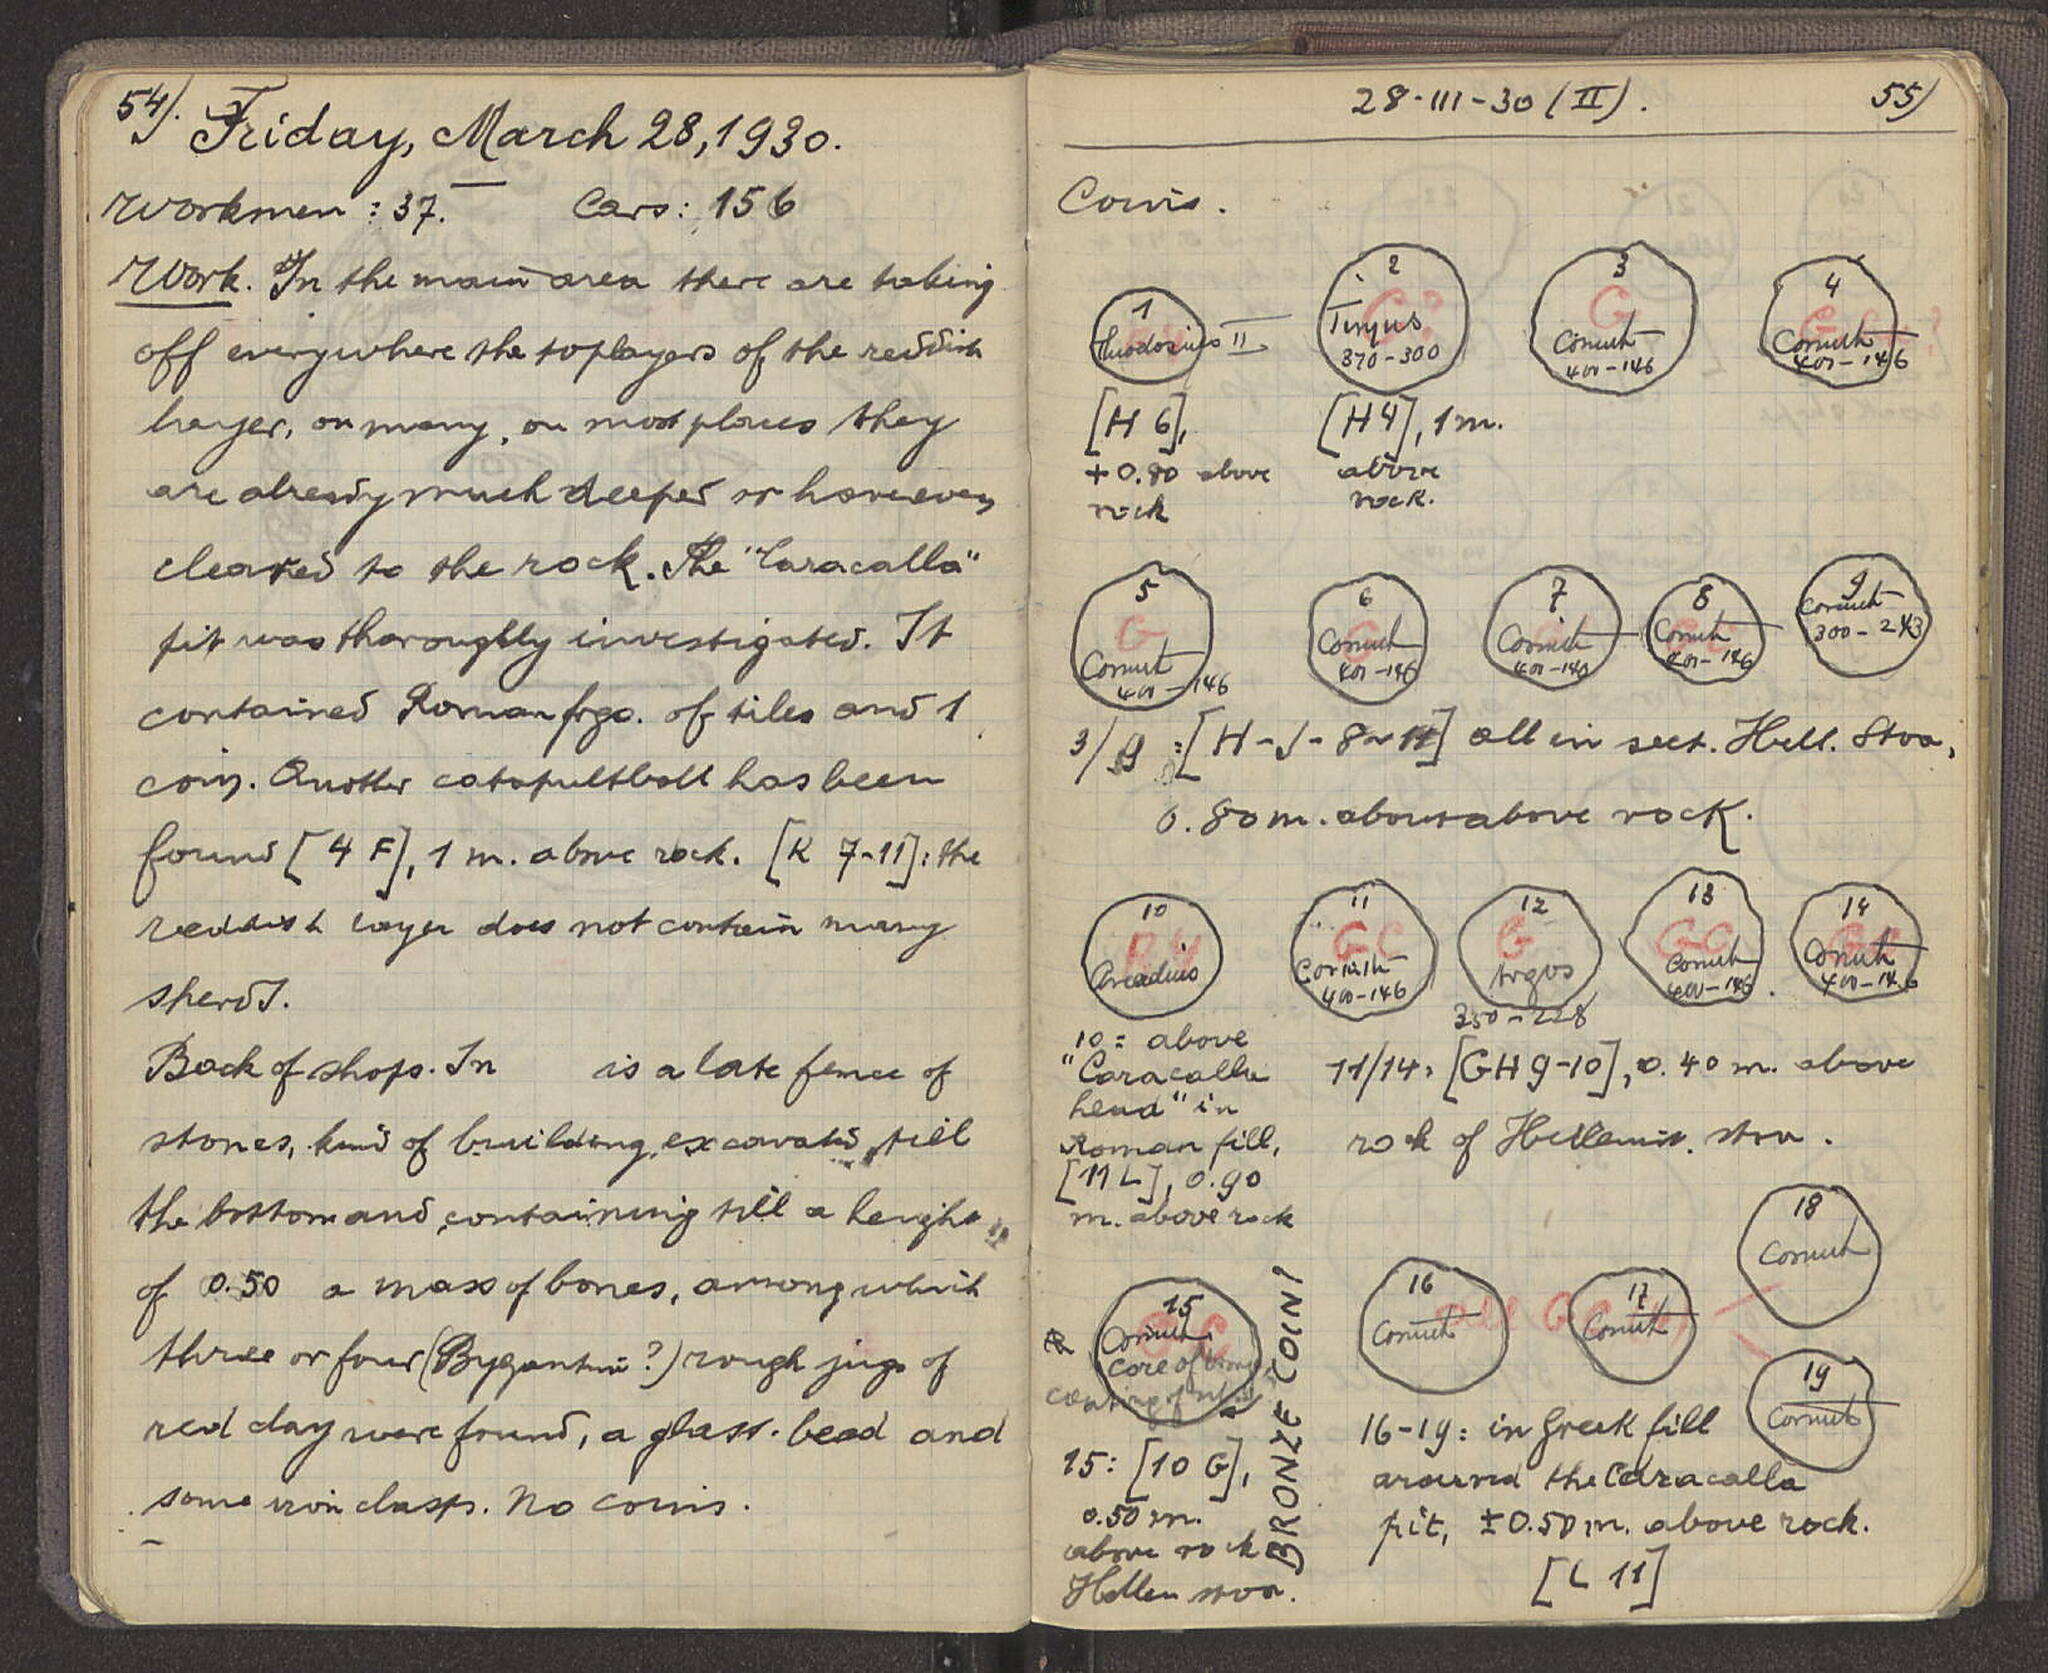 54).
Friday, March 28, 1930.
Workmen: 37. Cars: 156
Work. In the main area there are taking
off everywhere the toplayers of the reddish
layer, on many, on most places they
are already much deeper or however,
cleared to the rock. The "Caracalla"
pit was thoroughly investigated. It
contained Roman frgs. of tiles and 1
coin. Another catapultball has been
found [4 F], 1 m. above rock. [K 7-11]: the
reddish layer does not contain many
sherds.
Back of shops. In is a late fence of
stones, kind of building, excavated till
the bottom and containing till a height
of 0.50 a mass of bones, among which
three or four (Byzantine?) rough jugs of
red clay were found, a glass. bead and
some iron clasps. No coins.
28-III-30 (II). 55)
Coins.
1
Theodosius II
2
G?
370-300
3
G
Corinth
400-146
4
G
Corinth
400-146
[H 6],
+0.80 above
rock
[H4], 1 m.
above
rock.
5
G
Corinth
400-146
6
G
Corinth
400-146
7
G
Corinth
400-146
8
G
Corinth
400-146
9
Corinth
300-243
3/9 :[H-J-8-11] all in sect. Hell. Stoa,
0.80 m. about above rock.
10
Arcadius
11
GC
Corinth
400-146
12
G
Argos
350-228
13
GC
Corinth
400-146.
14
GC
Corinth
400-146
10 = above
"Caracalla
head" in
Roman fill,
[11 L], 0.90
m. above rock
11/14: [GH 9-10], 0.40 m. above
rock of Hellenist. stoa.
15
GC
Corinth
core of bronze
coating of
BRONZE COIN!
16
Corinth
all GC
17
Corinth
18
Corinth
19
Corinth
15: [10 G],
0.50 m.
above rock
Hellen stoa.
16-19: in Greek fill
around the Caracalla
pit, ±0.50 m. above rock.
[L 11]